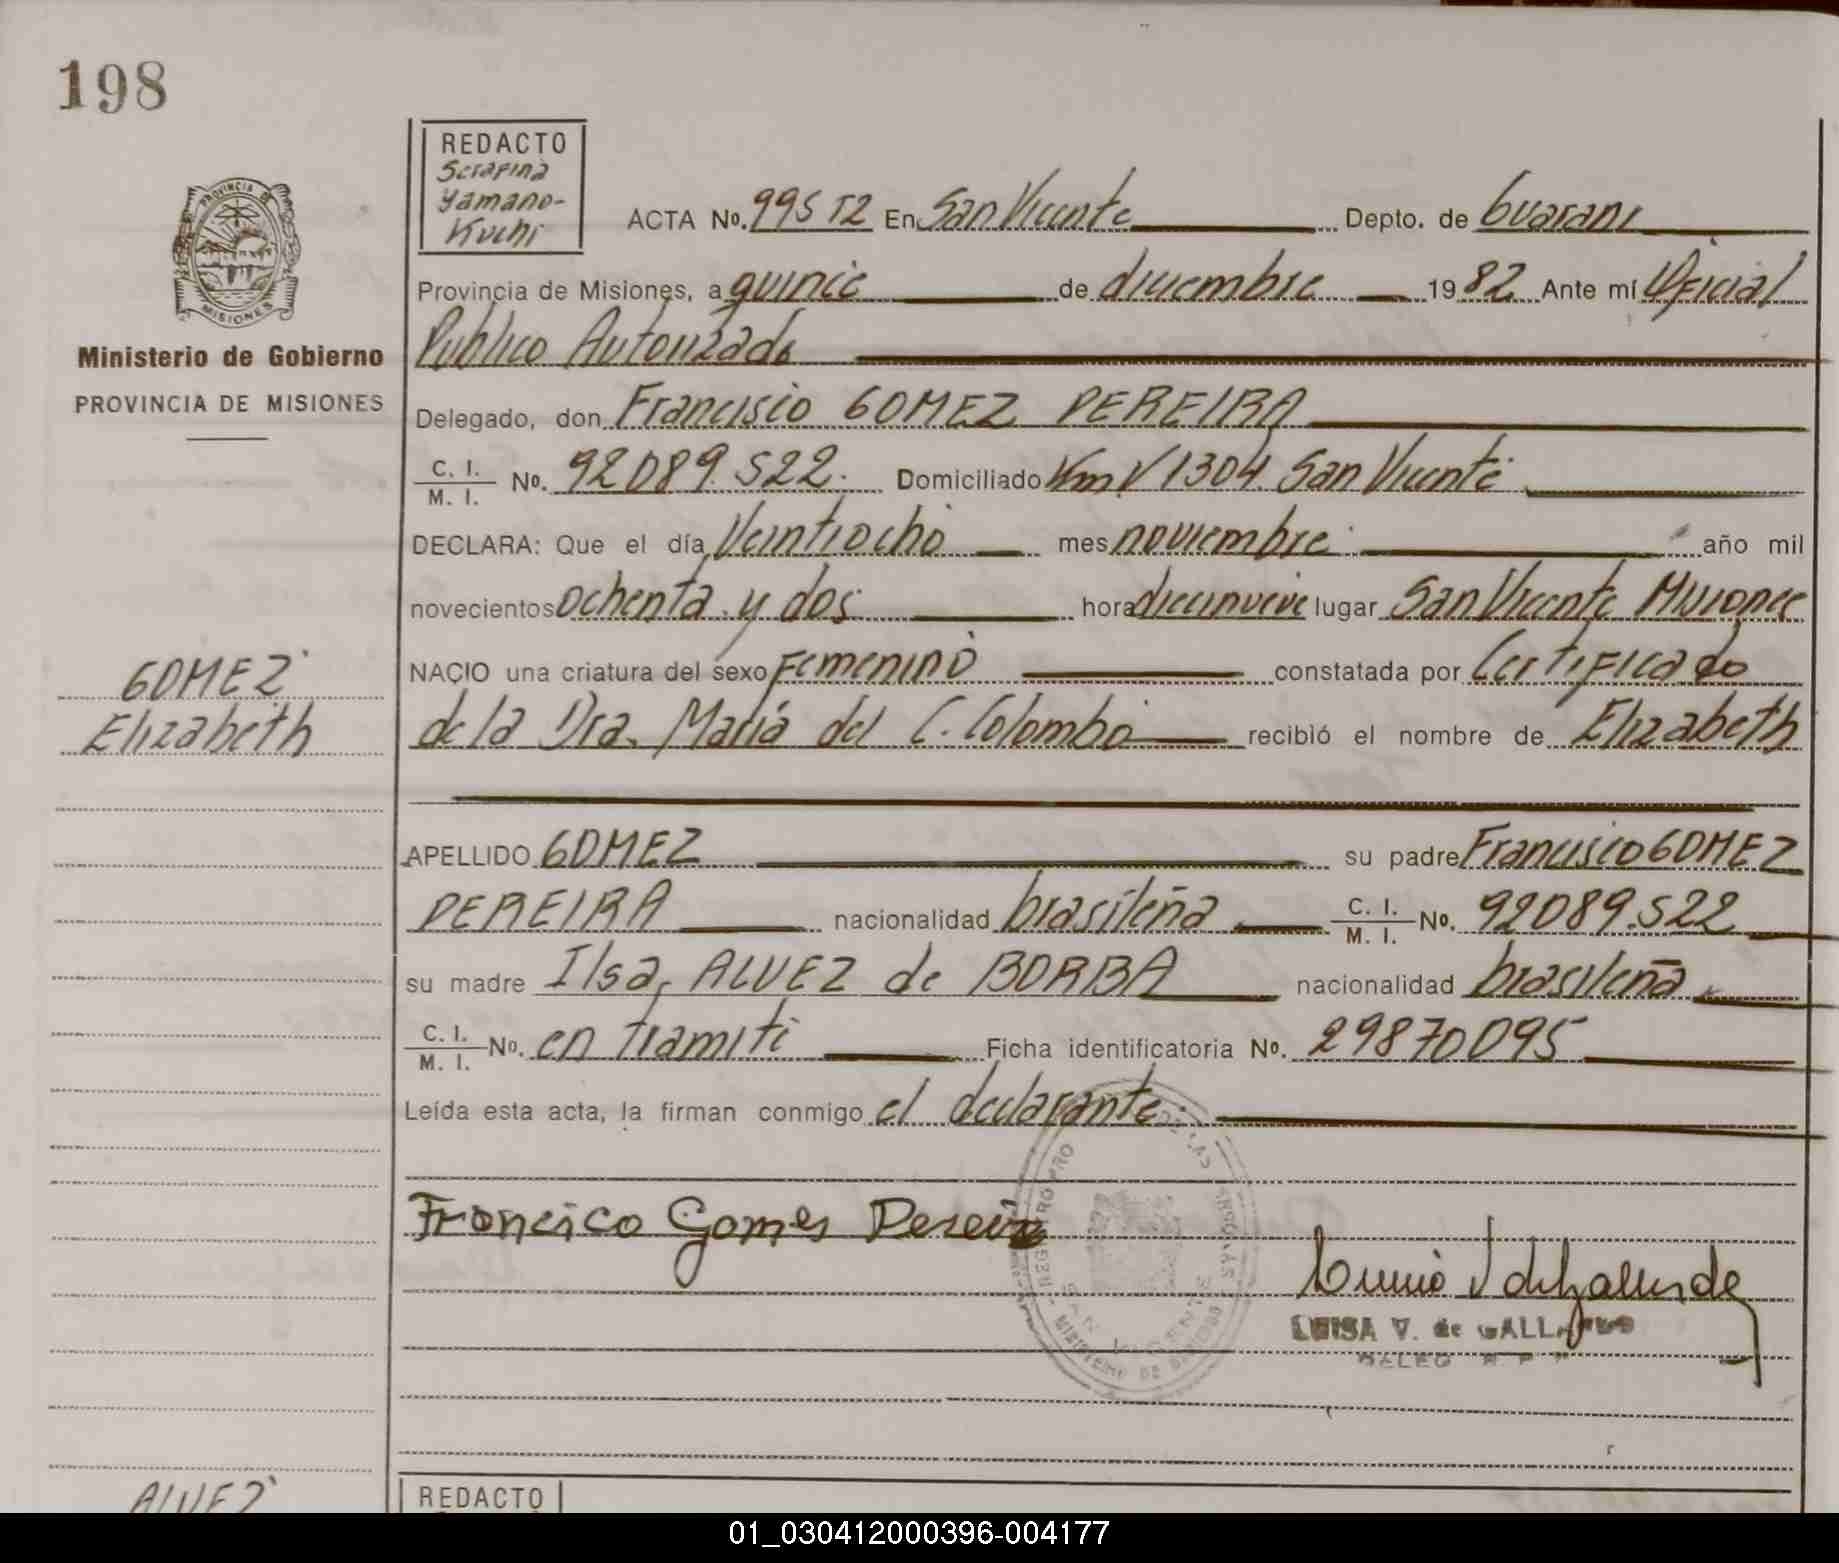 198
REDACTO
Serafina
Yamano-
Kuchi
PROVINCIA DE
MISIONES
Ministerio de Gobierno
PROVINCIA DE MISIONES
ACTA No. 995 T2 En San Vicente Depto. de Guarani
Provincia de Misiones, a quince de diciembre 1982 Ante mí Oficial
Publico Autorizado
Delegado, don Francisco GOMEZ PEREIRA
C. I. / M. I. No. 92089.522. Domiciliado Km V 1304 San Vicente
DECLARA: Que el día Veintiocho mes noviembre año mil
novecientos ochenta y dos hora diecinueve lugar San Vicente Misiones
NACIO una criatura del sexo Femenino constatada por Certificado
de la Dra. María del C. Colombo recibió el nombre de Elizabeth
GOMEZ
Elizabeth
APELLIDO GOMEZ su padre Francisco GOMEZ
PEREIRA nacionalidad brasileña C. I. / M. I. No. 92089.522
su madre Ilsa, ALVEZ de BORBA nacionalidad brasileña
C. I. / M. I. No. en tramite Ficha identificatoria No. 29870095
Leída esta acta, la firman conmigo el declarante
Francisco Gomes Pereira
SAN VICENTE
LUISA V. de GALLARDO
ALVEZ
REDACTO
01_030412000396-004177